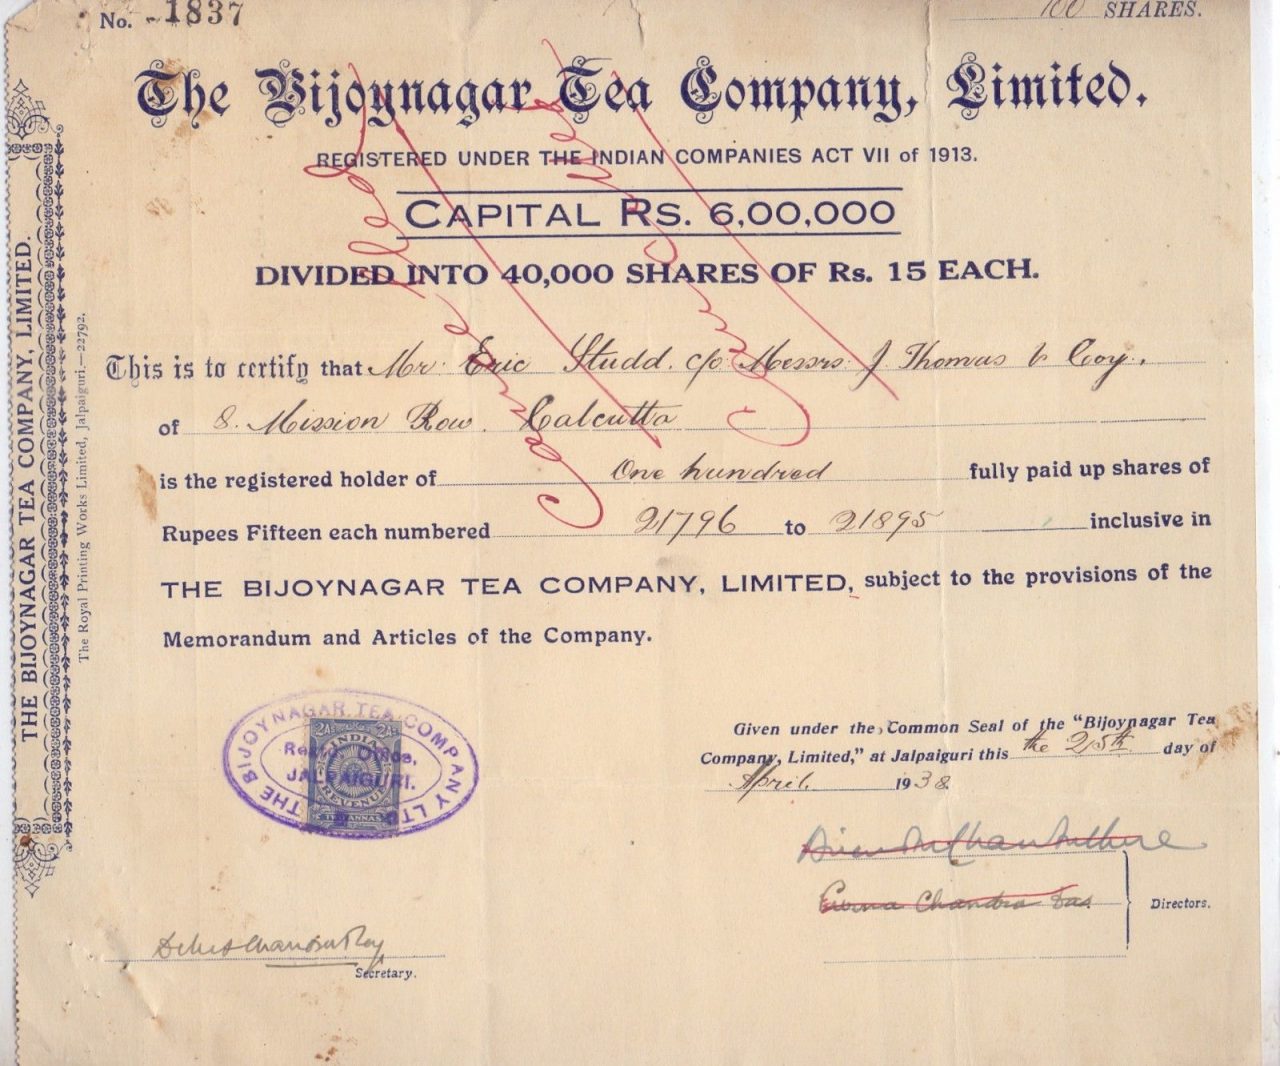 No. 1837
100 SHARES.
The Bijoynagar Tea Company, Limited.
REGISTERED UNDER THE INDIAN COMPANIES ACT VII of 1913.
CAPITAL RS. 6,00,000
DIVIDED INTO 40,000 SHARES OF Rs. 15 EACH.
Cancelled
Cancelled
This is to certify that Mr. Eric Studd. c/o Messrs. J. Thomas & Coy.,
of 8. Mission Row. Calcutta
is the registered holder of One hundred fully paid up shares of
Rupees Fifteen each numbered 21796 to 21895 inclusive in
THE BIJOYNAGAR TEA COMPANY, LIMITED, subject to the provisions of the
Memorandum and Articles of the Company.
Given under the Common Seal of the "Bijoynagar Tea
Company, Limited," at Jalpaiguri this the 25th day of
April. 1938
THE BIJOYNAGAR TEA COMPANY LTD
Regd. Office,
JALPAIGURI.
2As 2As
INDIA
REVENUE
TWO ANNAS
Chandra Das
Directors.
Secretary.
THE BIJOYNAGAR TEA COMPANY, LIMITED.
The Royal Printing Works Limited, Jalpaiguri.—22792.